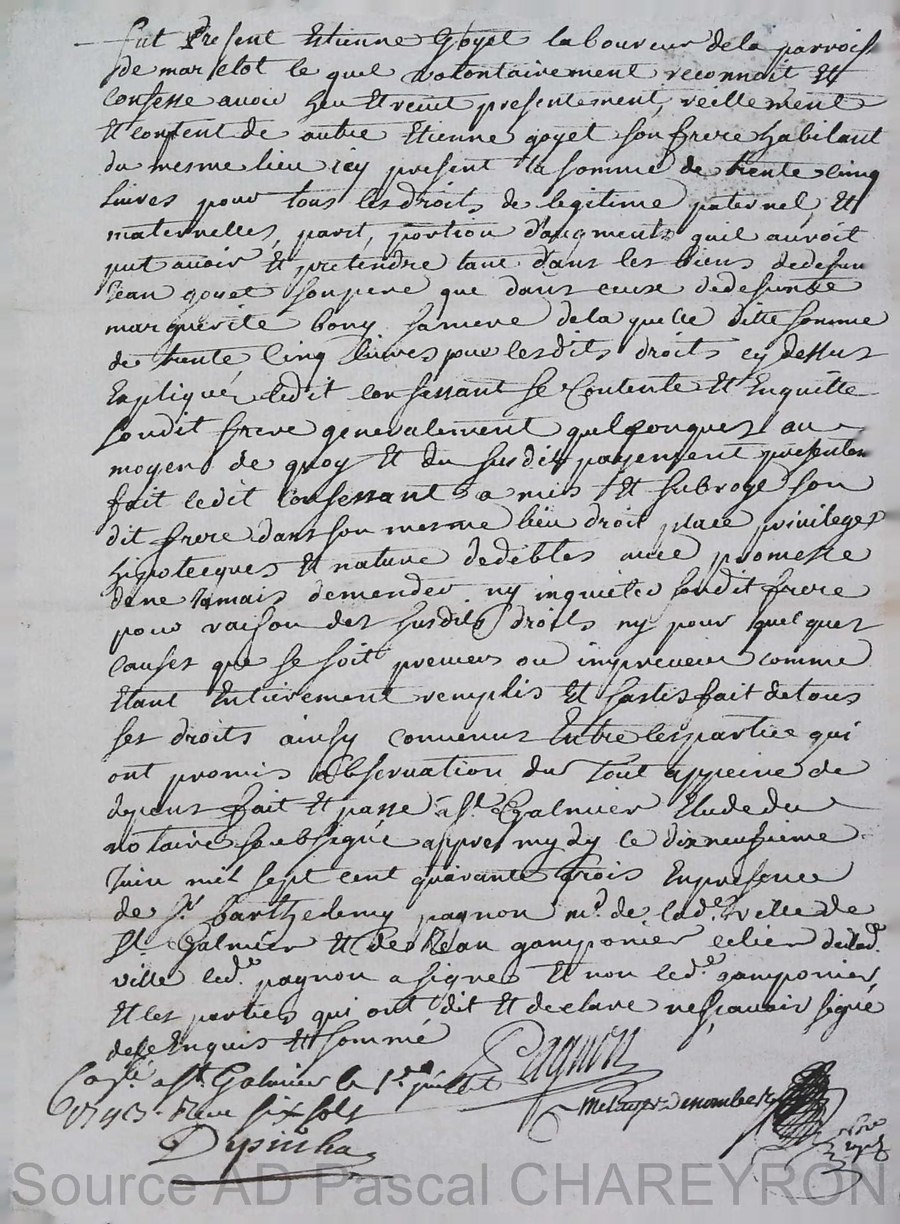 fut Present Estienne Goyet laboureur dela parroisse
de marclot le quel volontairement reconnoit Et
confesse avoir heu Et receu presentement, reellement
Et content de autre Etienne goyet son frere habitant
du mesme lieu icy present la somme de trente cinq
Livres pour tous les droits de legitime paternel, Et
maternelles, part, portion d'augments quel auroit
put avoir Et pretendre tant dans les biens dedefun
Jean goyet son pere que dans ceux dedefunte
marguerite bony sa mere dela quelle ditte somme
de trente cinq livres pour lesdits droits cy dessus
Expliqué, ledit confessant se Contente Et Enquitte
sondit frere generalement quelconques au
moyen de quoy Et du susdit payement presentem
fait ledit Confessant a mis Et subrogé son
dit frere dans son mesme lieu droit place privileges
hipotecques Et nature dedebtes avec promesse
dene Jamais demender ny inquieter sondit frere
pour raison des susdits droits ny pour quelques
causes que se soit preveus ou impreveus comme
Etant Entierement remplis Et sastisfait detous
ses droits ainsy convenus Entre lespartie qui
ont promis observation du Tout appeine de
depans fait Et passe a St. Galmier Etude du
notaire soubsigné appres mydy le dixneufieme
Juin mil sept cent quarante trois Enpresence
de Sr barthelemy pagnon md. de lade. ville de
St. Galmier Et de Jean gamponier celier delad.
ville led. pagnon a signe Et non led. gamponier
Et les parties qui ont dit Et declare nesçavoir signé
dece Enquis Et sommé
Pagnon
a St. Galmier le 1er juillet
1743. Reçu six sols
Source AD Pascal CHAREYRON